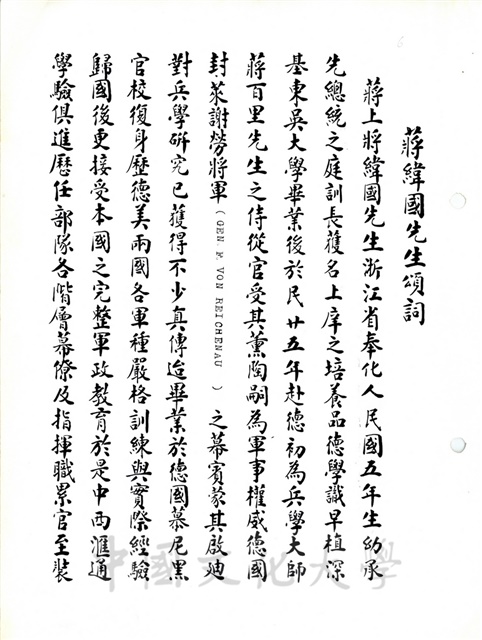 蔣緯國先生頌詞
蔣上將緯國先生浙江省奉化人民國五年生幼承
先總統之庭訓長獲名上庠之培養品德學識早植深
基東吳大學畢業後於民廿五年赴德初為兵學大師
蔣百里先生之侍從官受其薰陶嗣為軍事權威德國
封萊謝勞將軍(GEN. F. VON REICHENAU )之幕賓蒙其啟廸
對兵學研究已獲得不少真傳迨畢業於德國慕尼黑
官校復身歷德美兩國各軍種嚴格訓練與實際經驗
歸國後更接受本國之完整軍政教育於是中西滙通
學驗俱進歷任部隊各階層幕僚及指揮職累官至裝
中國文化大學